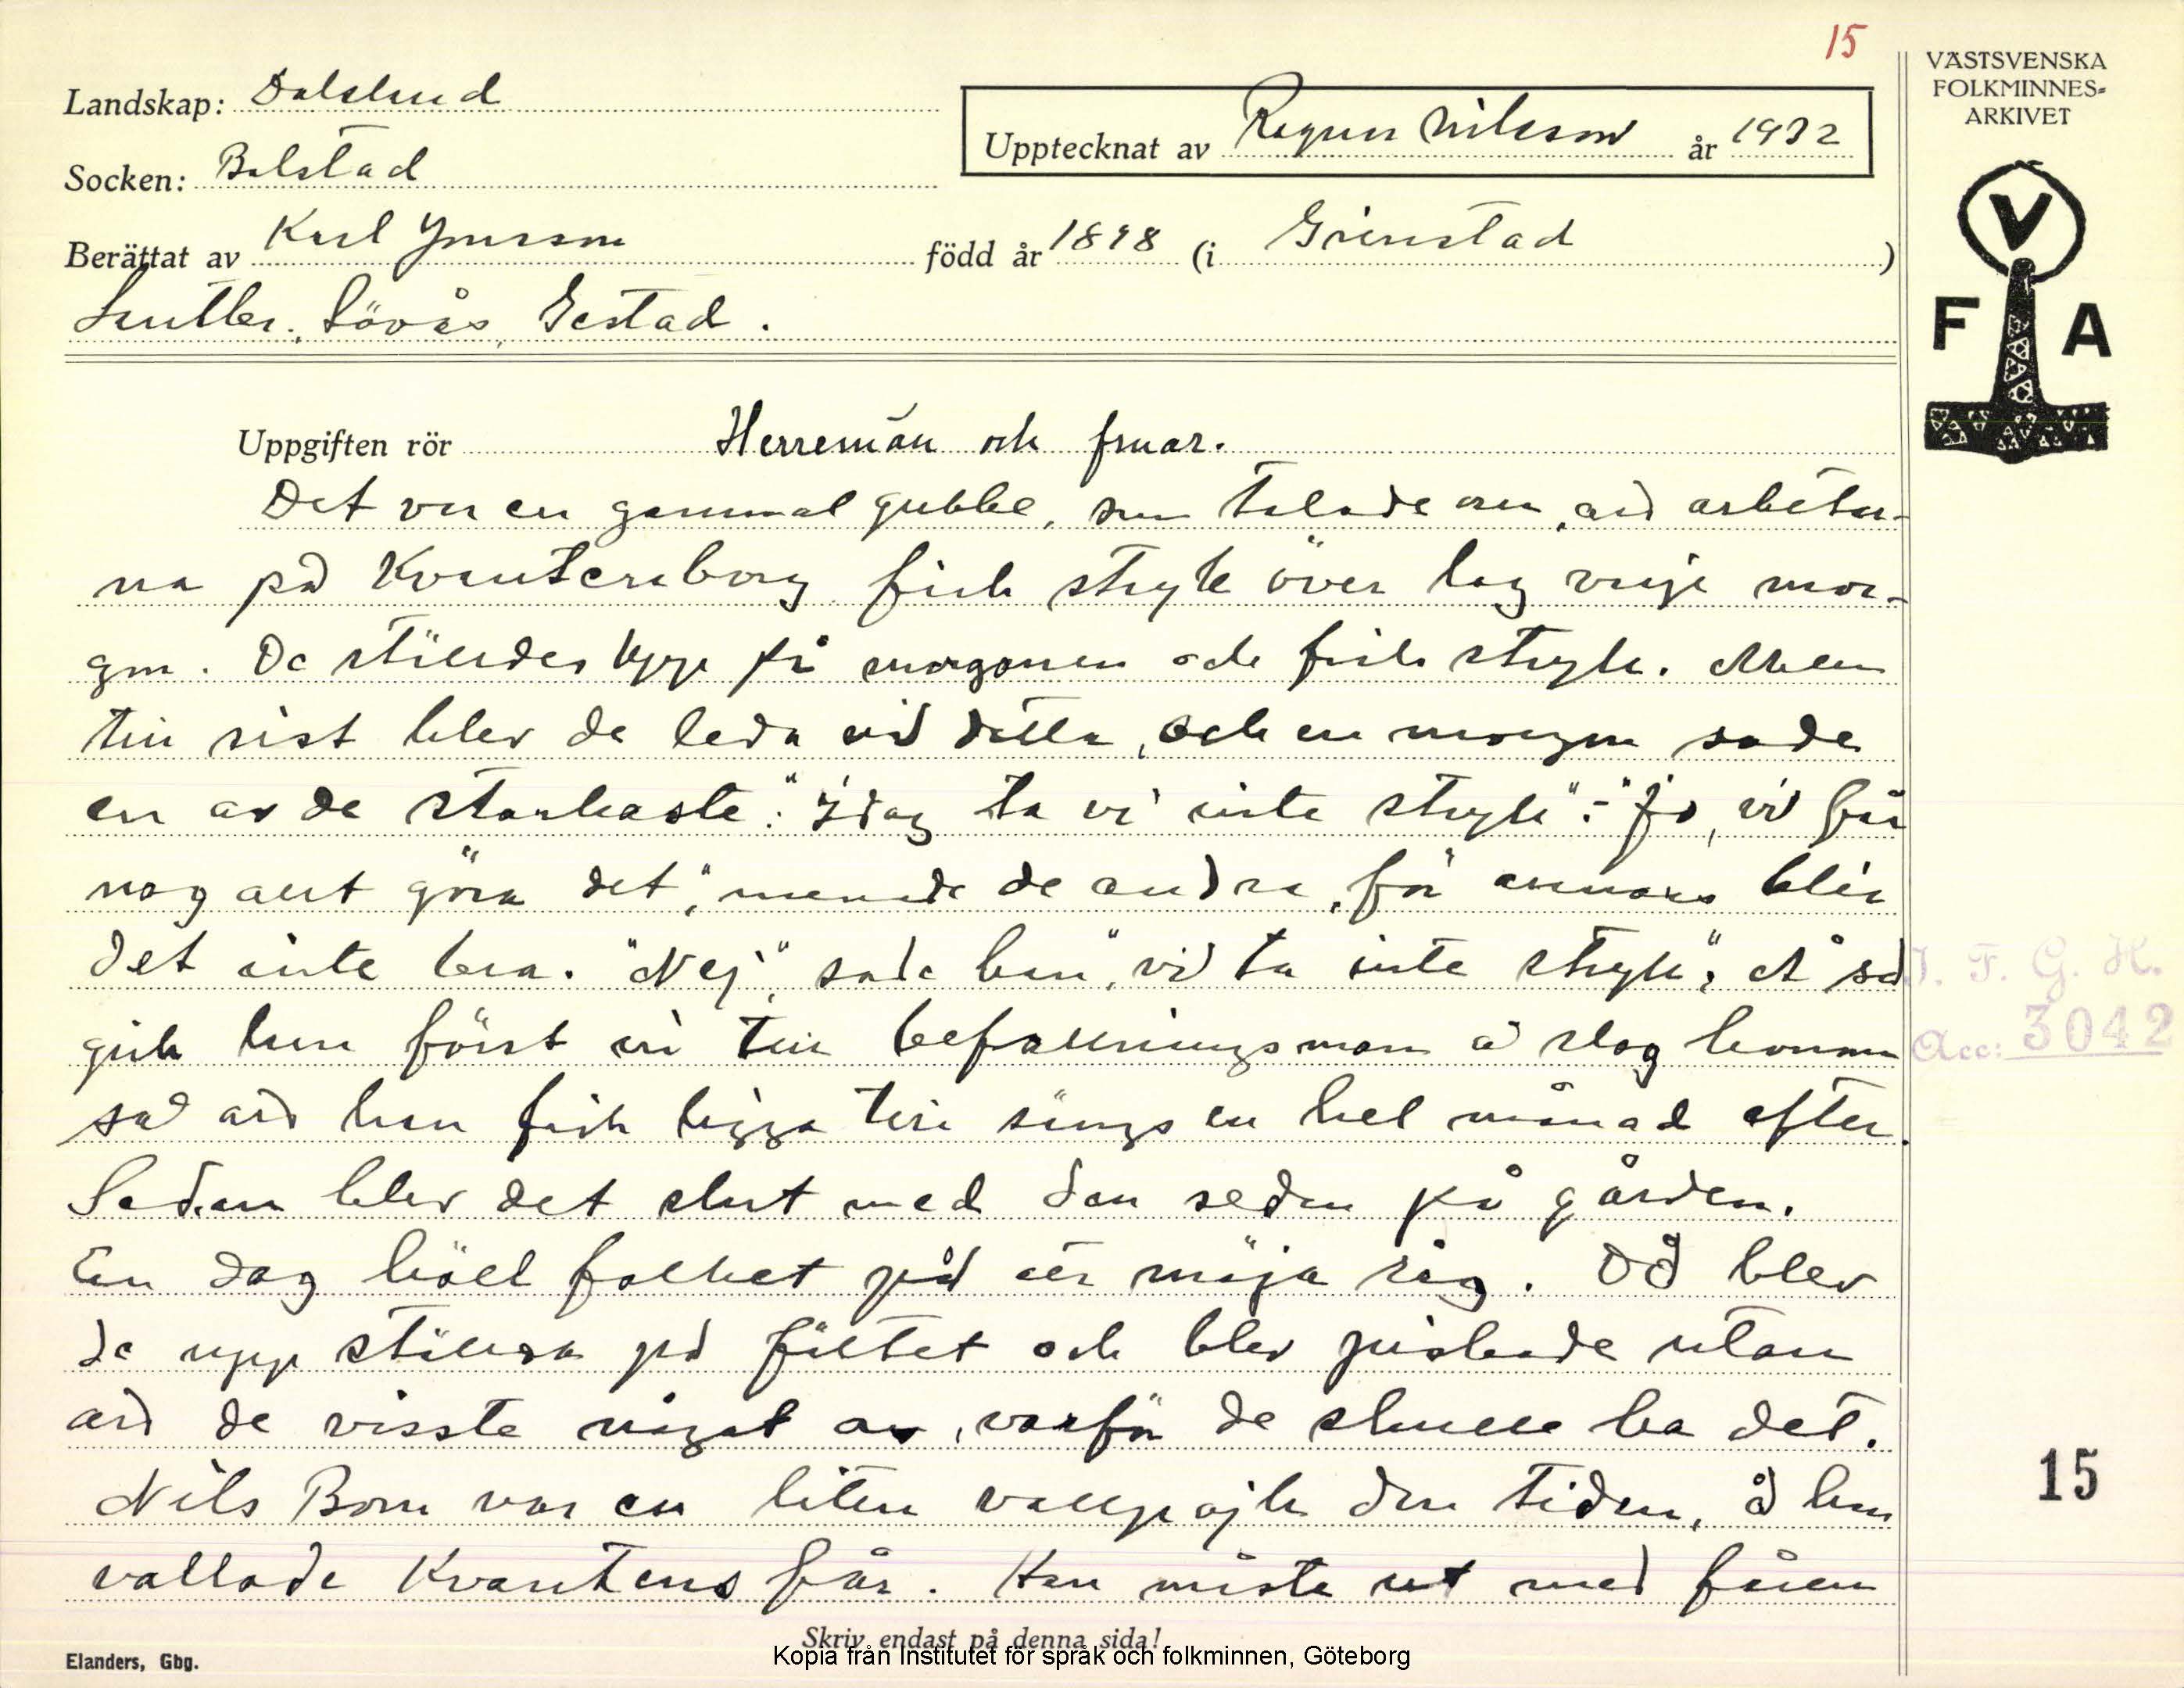 15
VÄSTSVENSKA
FOLKMINNES-
ARKIVET
Landskap: Dalsland
Upptecknat av Ragnar Nilsson år 1932
Socken: Bolstad
Berättat av Karl Jonsson född år 1898 (i Grinstad)
Lövås, Gestad.
V
F A
Uppgiften rör Herremän och fruar.
Det var en gammal gubbe, som talade om, att arbetar-
na på Kvantensborg fick stryk över lag varje mor-
gon. De ställdes upp på morgonen och fick stryk. Men
till sist blev de leda vid detta, och en morgon sade
en av de starkaste: "Idag ta vi inte stryk" - "Jo, vi får
nog allt göra det", menade de andra, för annars blir
det inte bra. "Nej", sade han, "vi ta inte stryk", Å så
gick han först in till befallningsman å slog honom
så att han fick ligga till sängs en hel månad efter.
Sedan blev det slut med den seden på gården.
En dag höll folket på att meja råg. Då blev
de upp ställda på fältet och blev piskade utan
att de visste något av, varför de skulle ha det.
Nils Bom var en liten vallpojk den tiden, å han
vallade Kvantens får. Han måste ut med fåren
I. F. G. H.
Acc: 3042
15
Skriv endast på denna sida!
Elanders, Gbg.
Kopia från Institutet för språk och folkminnen, Göteborg